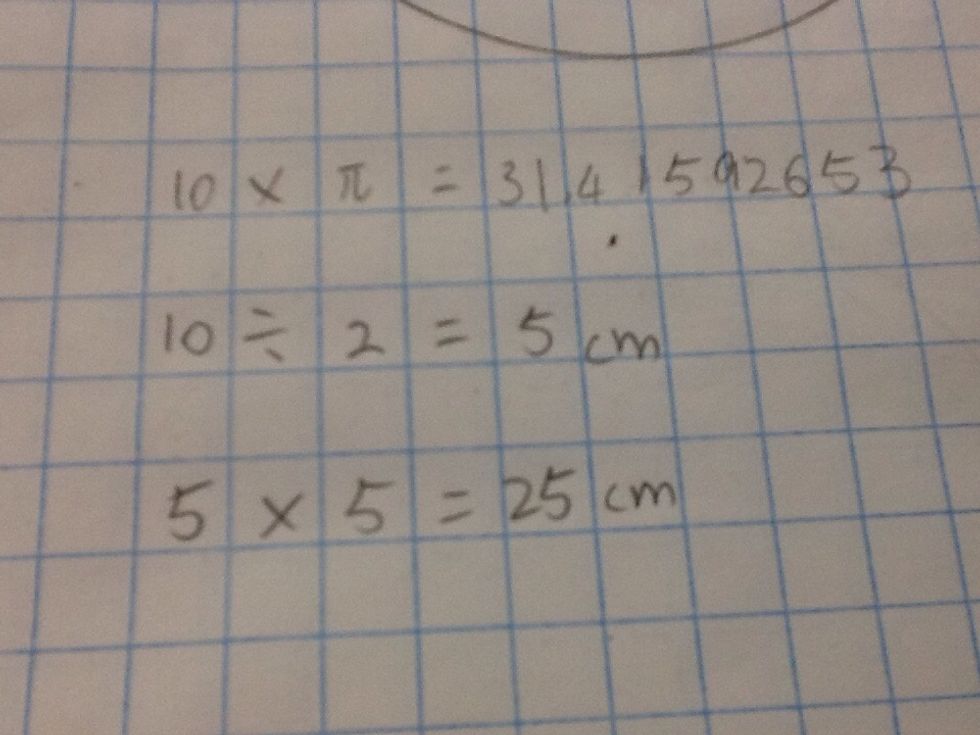 10 × π = 31.41592653
10 ÷ 2 = 5 cm
5 × 5 = 25 cm